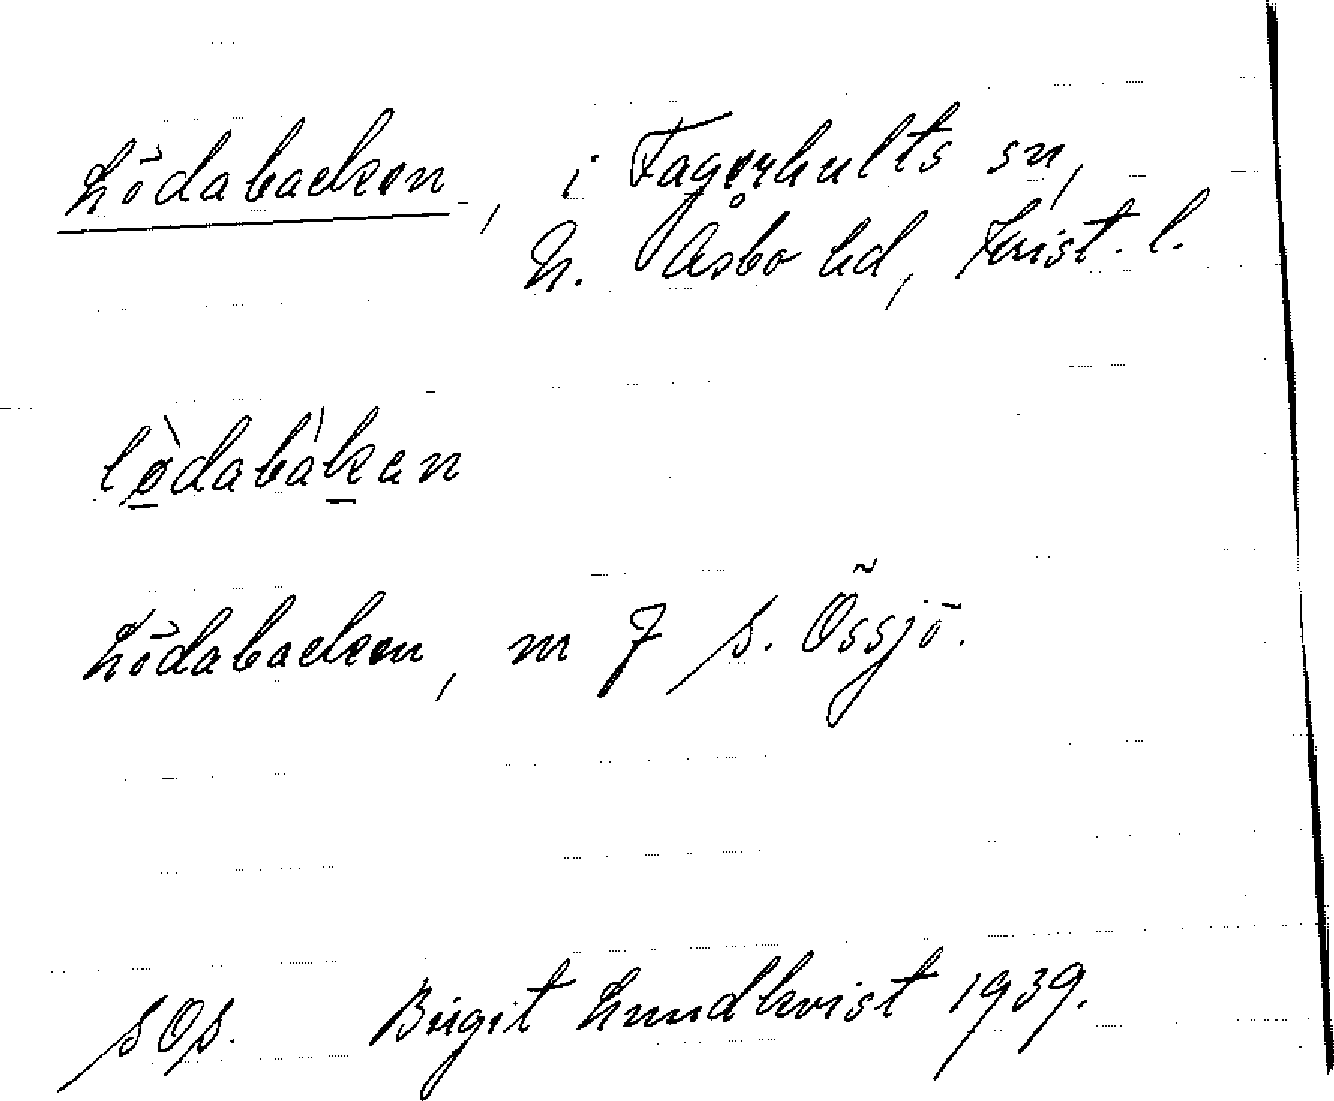 Lödabacken, i Fagerhults sn,
N. Åsbo hd, Krist. l.
lø̀dabàkan
Lödabacken, m f s. Össjö.
sOs. Birgit Lundkvist 1939.